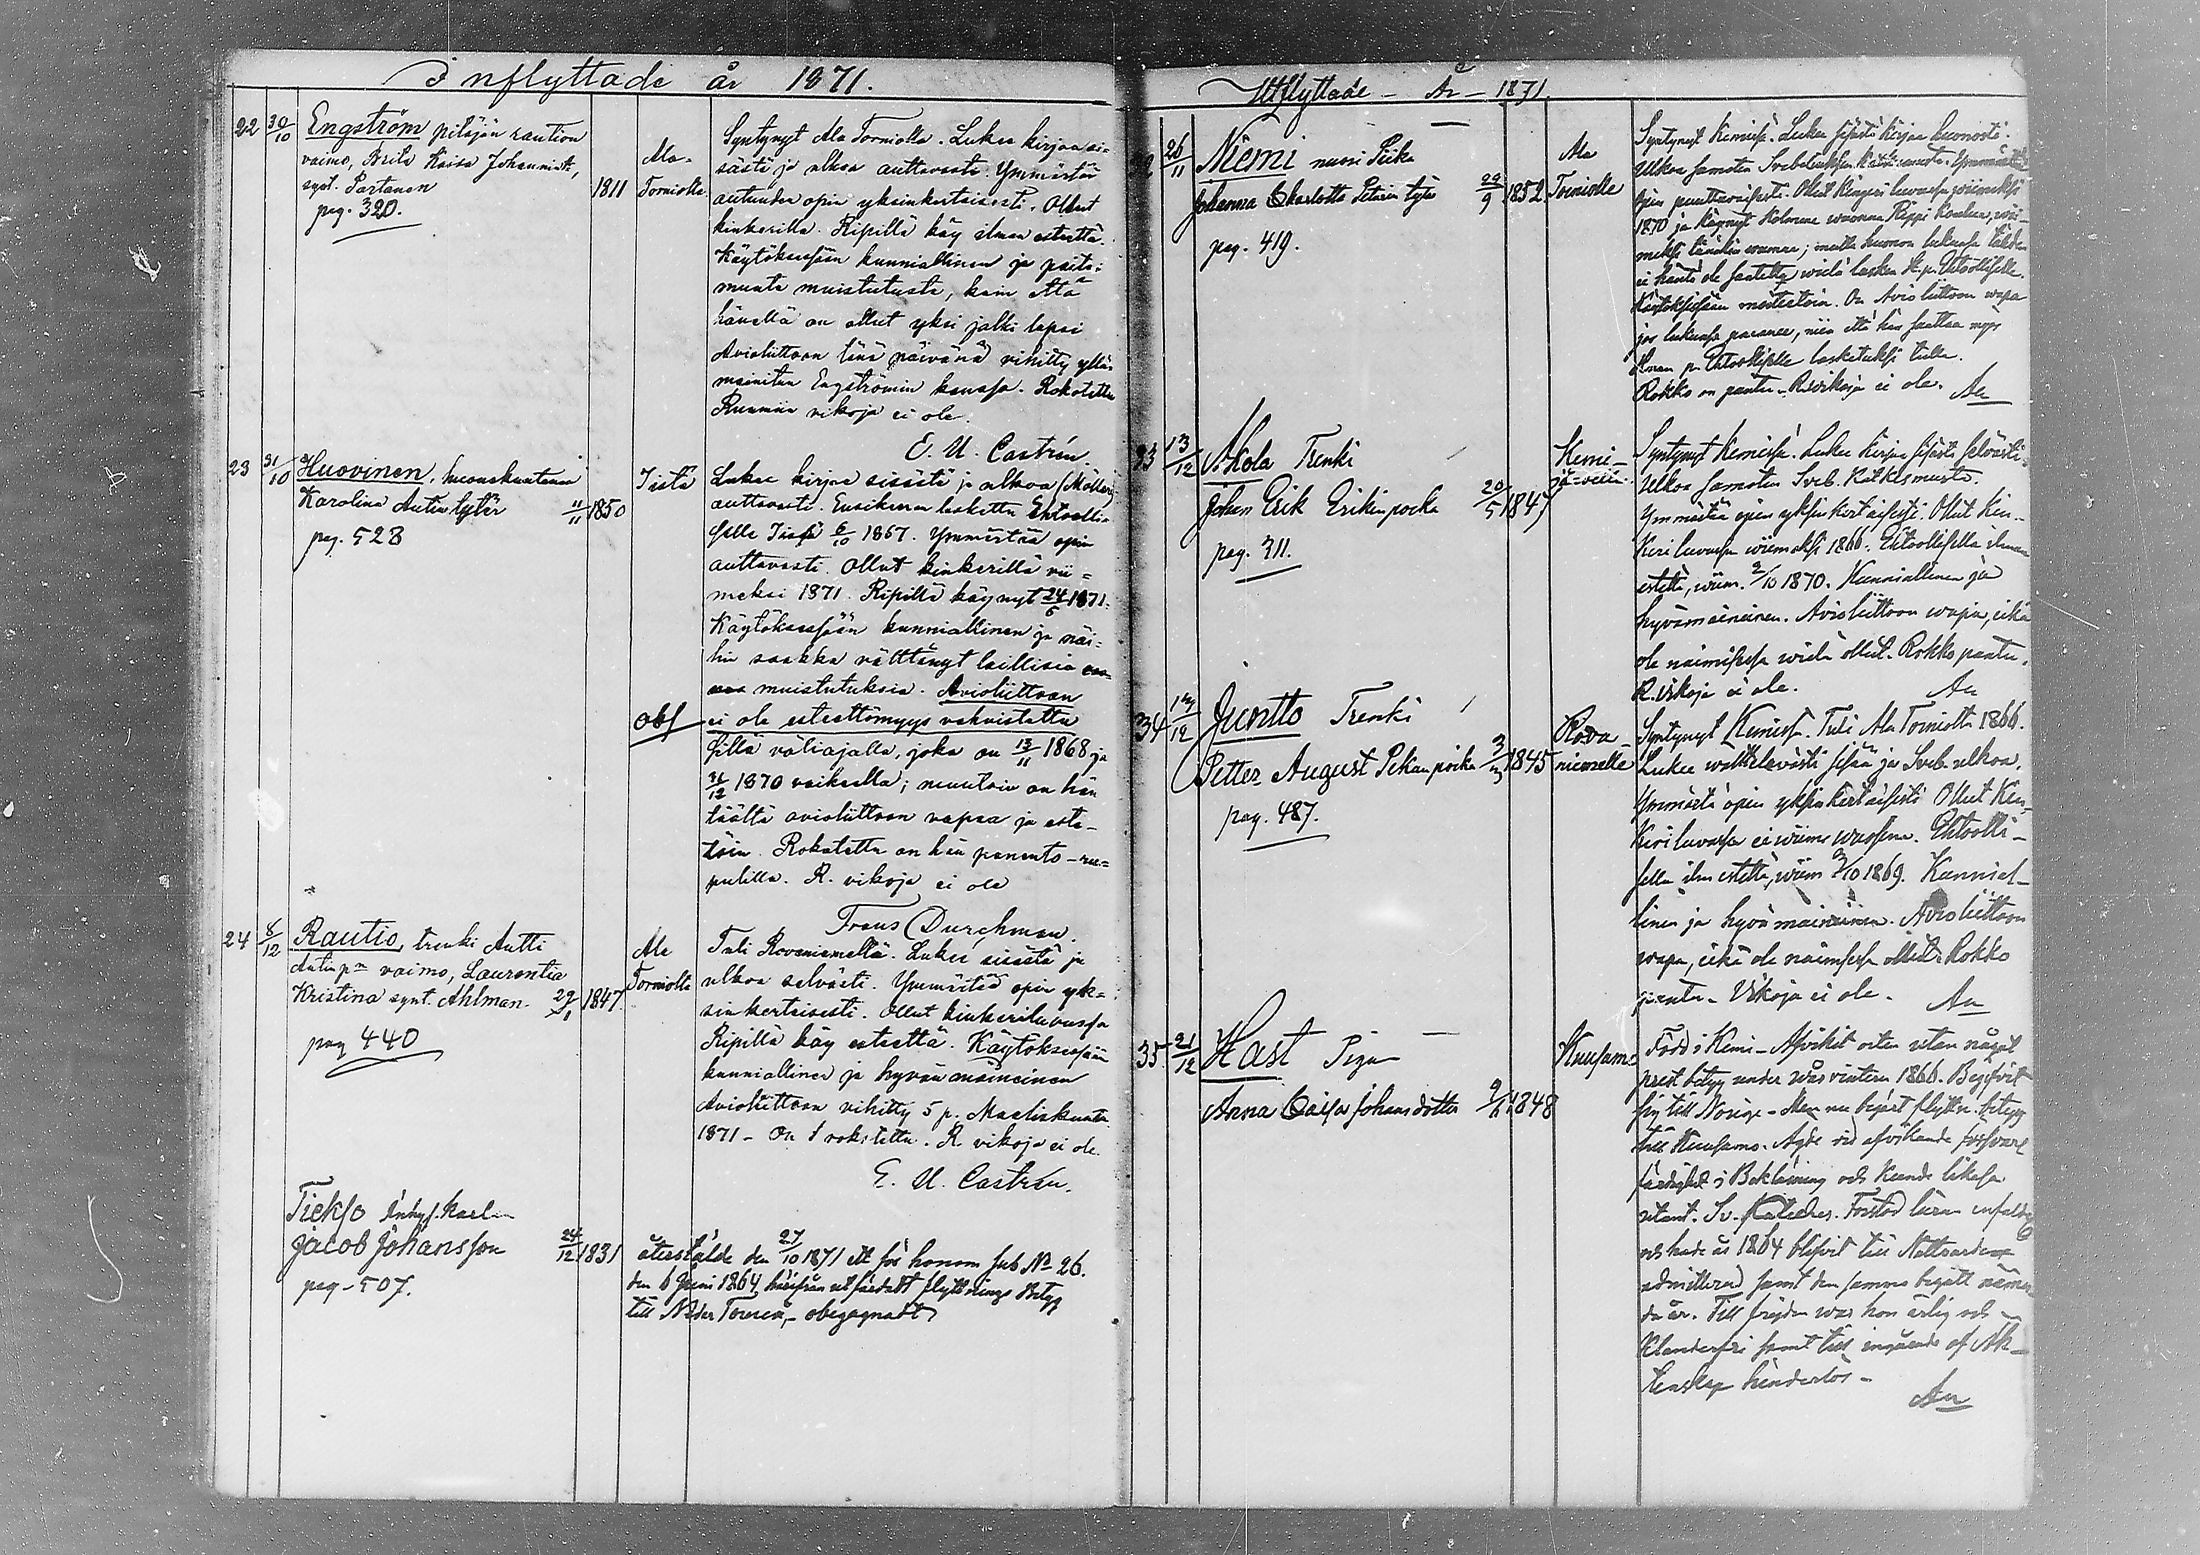 Inflyttade år 1871.
22 30/10 Engström pitäjän raution
vaimo, Brita Kaisa Johannint.,
synt. Partanen 1811
pag. 320.
Ala-
Torniolta
Syntynyt Ala Torniolta. Lukee kirjaa si-
sästä ja ulkoa auttavasti. Ymmärtää
autuuden opin yksinkertaisesti. Ollut
kinkerillä. Ripillä käy ilman estettä.
Käytöksessään kunniallinen ja paitsi
muuta muistutusta, kuin että
hänellä on ollut yksi jalki lapsi
Avioliittoon tänä päivänä vihitty yllä-
mainitun Engströmin kanssa. Rokotettu
Ruumiin vikoja ei ole.
E. U. Castrén
23 31/10 Huovinen, huoneskuntainen
Karolina Antin tytär 11/11 1850
pag. 528
Iistä
Lukee kirjaa sisästä ja ulkoa (Möller)
auttavasti. Ensikerran laskettu Ehtoolli-
selle Iissä 6/10 1867. Ymmärtää opin
auttavasti. Ollut kinkerillä vii-
meksi 1871. Ripillä käynyt 24/6 1871.
Käytöksessään kunniallinen ja näi-
hin saakka välttänyt laillisia
muistutuksia. Avioliittoon
Obs ei ole esteettömyys vahvistettu
sillä väliajalla, joka on 13/11 1868 ja
31/12 1870 vaiheella; muutoin on hän
täältä avioliittoon vapaa ja este-
töin. Rokotettu on hän panento-ru-
pulilla. R. vikoja ei ole
Frans Durchman.
24 8/12 Rautio, trenki Antti
Antinp:n vaimo, Laurentia
Kristina synt. Ahlman. 27/1 1847.
pag 440
Ala
Torniolta
Tuli Rovaniemellä. Lukee sisästä ja
ulkoa selvästi. Ymmärtää opin yk-
sinkertaisesti. Ollut kinkeriluvussa
Ripillä käy esteettä. Käytöksessään
kunniallinen ja hyvän maineinen
Avioliittoon vihitty 5 p. Maaliskuuta
1871 - On rokotettu. R. vikoja ei ole
E. U. Castrén.
Tiekso Inhys. karl
Jacob Johansson 24/12 1831
pag - 507.
återstälde den 27/10 1871 ett för honom sub No 26.
den 6 Juni 1864 härifrån utfärdadt flyttnings betyg
till Neder Torneå, - obegagnadt
Utflyttade - År - 1871.
26/11 Niemi nuori Piika
Johanna Charlotta Petarin tytär 29/9 1852
pag. 419.
Ala
Torniolle
Syntynyt Kemissä. Lukee sisästä kirjaa huonosti.
Ulkoa samoten
opin puuttuvaisesti. Ollut kinkeri luvussa viimeksi
1870 ja käynyt kolmena vuonna Rippi koulua, vii-
meksi tänä vuonna; mutta huonon lukunsa tähden
ei häntä ole saatettu vielä laskea H. p. Ehtoolliselle.
Käytöksessään moitteetoin. On Avioliittoon vapa
jos lukunsa paranee, niin että hän saattaa myös
Herran p. Ehtoolliselle lasketuksi tulla.
Rokko on pantu. R. vikoja ei ole. An
33 13/12 Akola Trenki
Johan Erik Erikin poika 20/5 1847
pag. 311.
Kemi-
järveen
Syntynyt Kemissä. Lukee kirjaa sisästä selvästi.
Ulkoa samoten Sveb. Katkesmusta.
Ymmärtää opin yksinkertaisesti. Ollut kin-
keri luvussa viimeksi 1866. Ehtoollisella ilman
estettä, viim. 2/10 1870. Kunniallinen ja
hyvämaineinen. Avioliittoon vapa, eikä
ole naimisessa vielä ollut. Rokko pantu.
R. vikoja ei ole. An
34 14/12 Juntto Trenki
Petter August Pekan poika 3/3 1845
pag. 487.
Rova-
niemelle
Syntynyt Kemissä. Tuli Ala Torniolta 1866.
Lukee välttelevästi sisää ja Sveb. ulkoa.
Ymmärtä opin yksinkertaisesti Ollut Kin-
keri luvussa ei viime vuosina. Ehtoolli-
sella ilm. estettä, viim 3/10 1869. Kunnial-
linen ja hyvä maineinen. Avioliittoon
vapa, eikä ole naimisessa ollut. Rokko
pantu. Vikoja ei ole. An
35. 21/12 Hast Piga
Anna Caisa Johansdotter 1848
Kuusamo
Född i Kemi - Afvikit orten utan något
prest betyg under vårvintern 1866. Begifvit
sig till Norige - Men nu begärt flyttn. betyg
till Kuusamo. Ägde vid afvikande försvarl
färdighet i Boklesning och kunde likaså
utant. Sv. Kateches. Förstod läran enfaldig
och hade år 1864 blifvit till Nattvarden
admitterad samt den samma begått nämn-
da år. Till frejden war hon ärlig och
Klanderfri samt till ingående af Äk-
tenskap hinderlös -
An